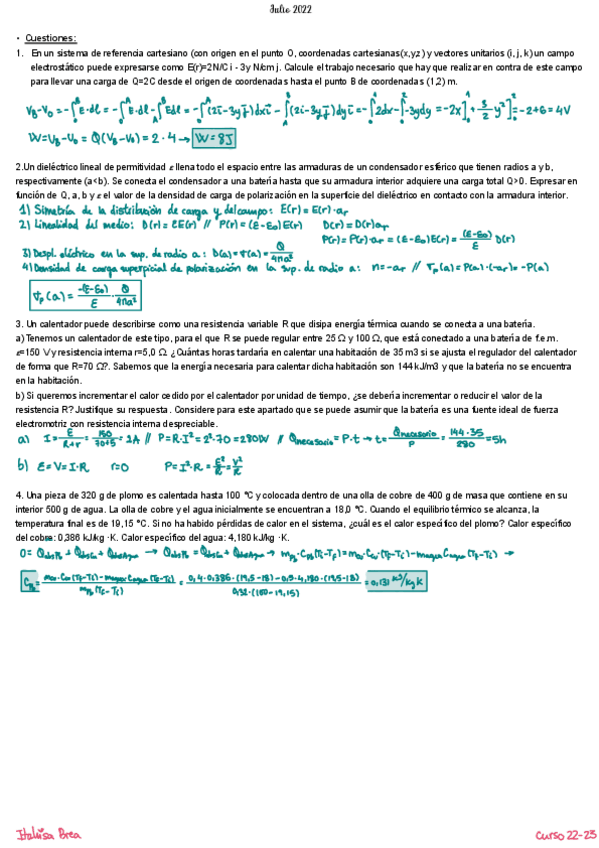 Julio 2022
• Cuestiones:
1. En un sistema de referencia cartesiano (con origen en el punto O, coordenadas cartesianas(x,yz) y vectores unitarios (i, j, k) un campo
electrostático puede expresarse como E(r)=2N/C i - 3y N/cm j. Calcule el trabajo necesario que hay que realizar en contra de este campo
para llevar una carga de Q=2C desde el origen de coordenadas hasta el punto B de coordenadas (1,2) m.
W=U_B-U_0 = Q(V_B-V_0) = 2·4 → W=8J
2.Un dieléctrico lineal de permitividad ε llena todo el espacio entre las armaduras de un condensador esférico que tienen radios a y b,
respectivamente (a<b). Se conecta el condensador a una batería hasta que su armadura interior adquiere una carga total Q>0. Expresar en
función de Q, a, b y ε el valor de la densidad de carga de polarización en la superficie del dieléctrico en contacto con la armadura interior.
1) Simetría de la distribución de carga y del campo: E(r) = E(r)·ar
2) Linealidad del medio: D(r) = εE(r) // P(r) = (ε-ε0)E(r) D(r) = D(r)ar
P(r) = P(r)·ar = (ε-ε0)E(r) = (ε-ε0)/ε D(r)
3) Despl. eléctrico en la sup. de radio a: D(a) = σ(a) = Q/4πa²
4) Densidad de carga superficial de polarización en la sup. de radio a: n=-ar // σp(a) = P(a)·(-ar) = -P(a)
σp(a) = -(ε-ε0)/ε · Q/4πa²
3. Un calentador puede describirse como una resistencia variable R que disipa energía térmica cuando se conecta a una batería.
a) Tenemos un calentador de este tipo, para el que R se puede regular entre 25 Ω y 100 Ω, que está conectado a una batería de f.e.m.
ε=150 V y resistencia interna r=5,0 Ω. ¿Cuántas horas tardaría en calentar una habitación de 35 m3 si se ajusta el regulador del calentador
de forma que R=70 Ω?. Sabemos que la energía necesaria para calentar dicha habitación son 144 kJ/m3 y que la batería no se encuentra
en la habitación.
b) Si queremos incrementar el calor cedido por el calentador por unidad de tiempo, ¿se debería incrementar o reducir el valor de la
resistencia R? Justifique su respuesta. Considere para este apartado que se puede asumir que la batería es una fuente ideal de fuerza
electromotriz con resistencia interna despreciable.
a) I = E/R+r = 150/70+5 = 2A // P=R·I² = 2²·70 = 280W // Qnecesario = P·t → t = Qnecesario/P = 144·35/280 = 5h
b) E=V=I·R r=0 P=I²·R = E²/R = V²/R
4. Una pieza de 320 g de plomo es calentada hasta 100 ºC y colocada dentro de una olla de cobre de 400 g de masa que contiene en su
interior 500 g de agua. La olla de cobre y el agua inicialmente se encuentran a 18,0 ºC. Cuando el equilibrio térmico se alcanza, la
temperatura final es de 19,15 ºC. Si no ha habido pérdidas de calor en el sistema, ¿cuál es el calor específico del plomo? Calor específico
del cobre: 0,386 kJ/kg ·K. Calor específico del agua: 4,180 kJ/kg ·K.
= 0,131 kJ/kg K
Curso 22-23